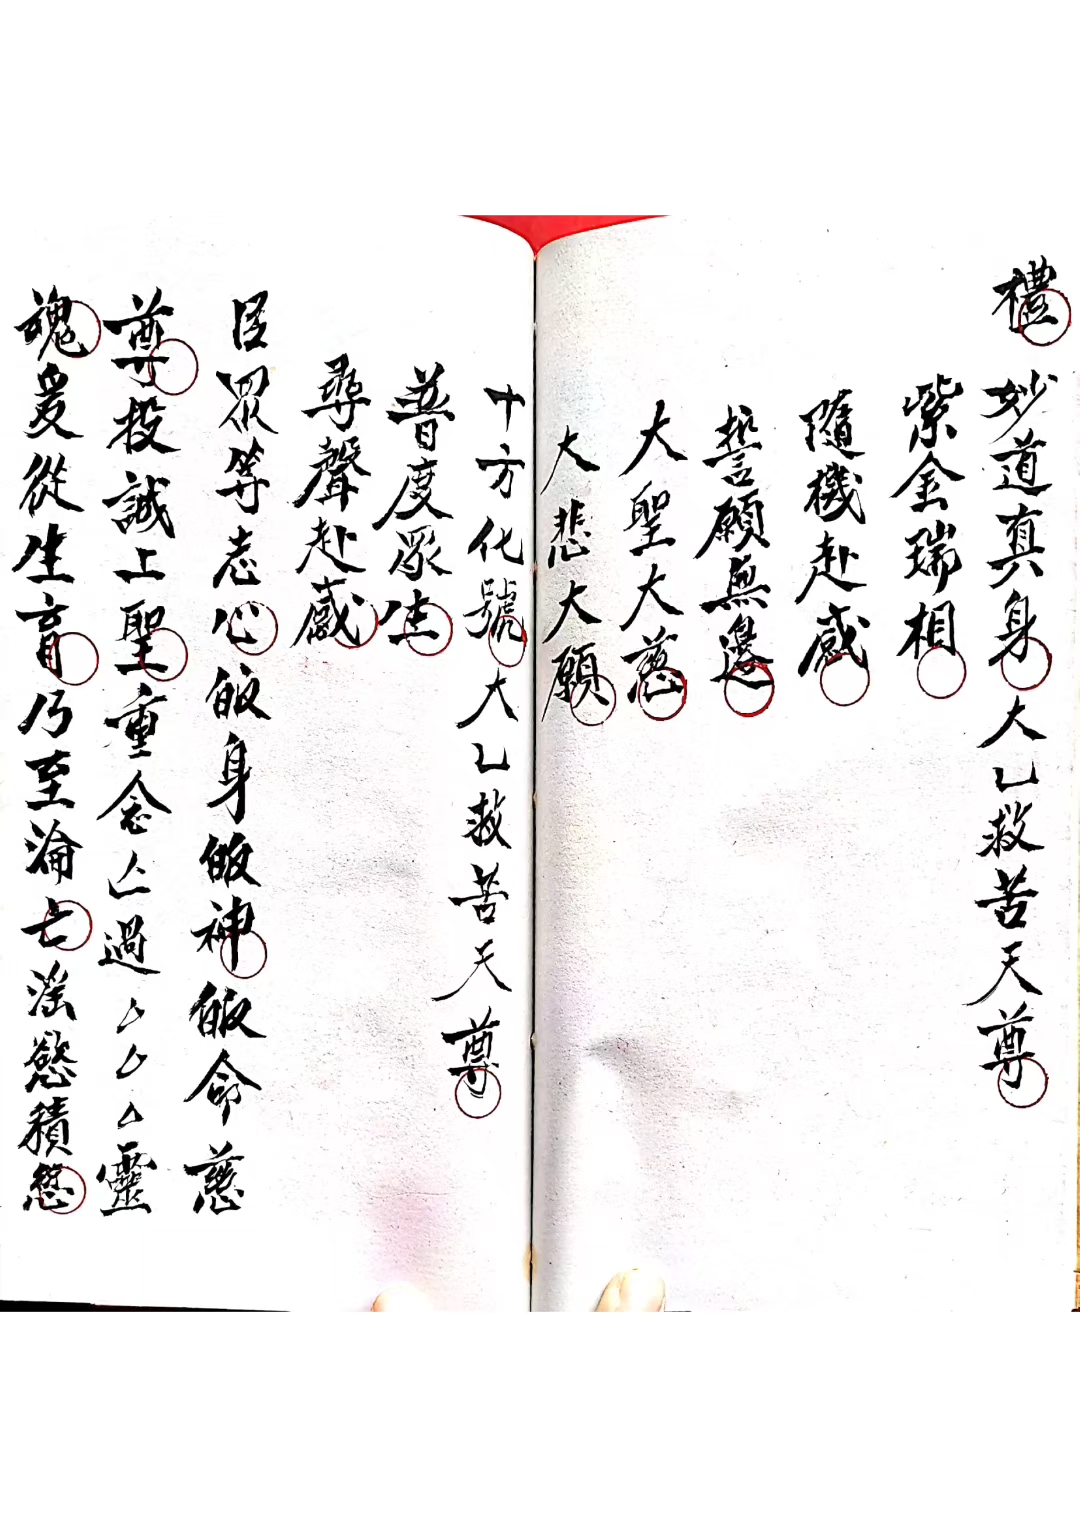 禮
妙道真身大乙救苦天尊
紫金瑞相
隨機赴感
誓願無邊
大聖大慈
大悲大願
十方化號大乙救苦天尊
普度眾生
尋聲赴感
臣眾等志心皈身皈神皈命慈
尊投誠上聖重念亡過厶厶厶靈
魂爰從生育乃至淪亡淫慾積愆